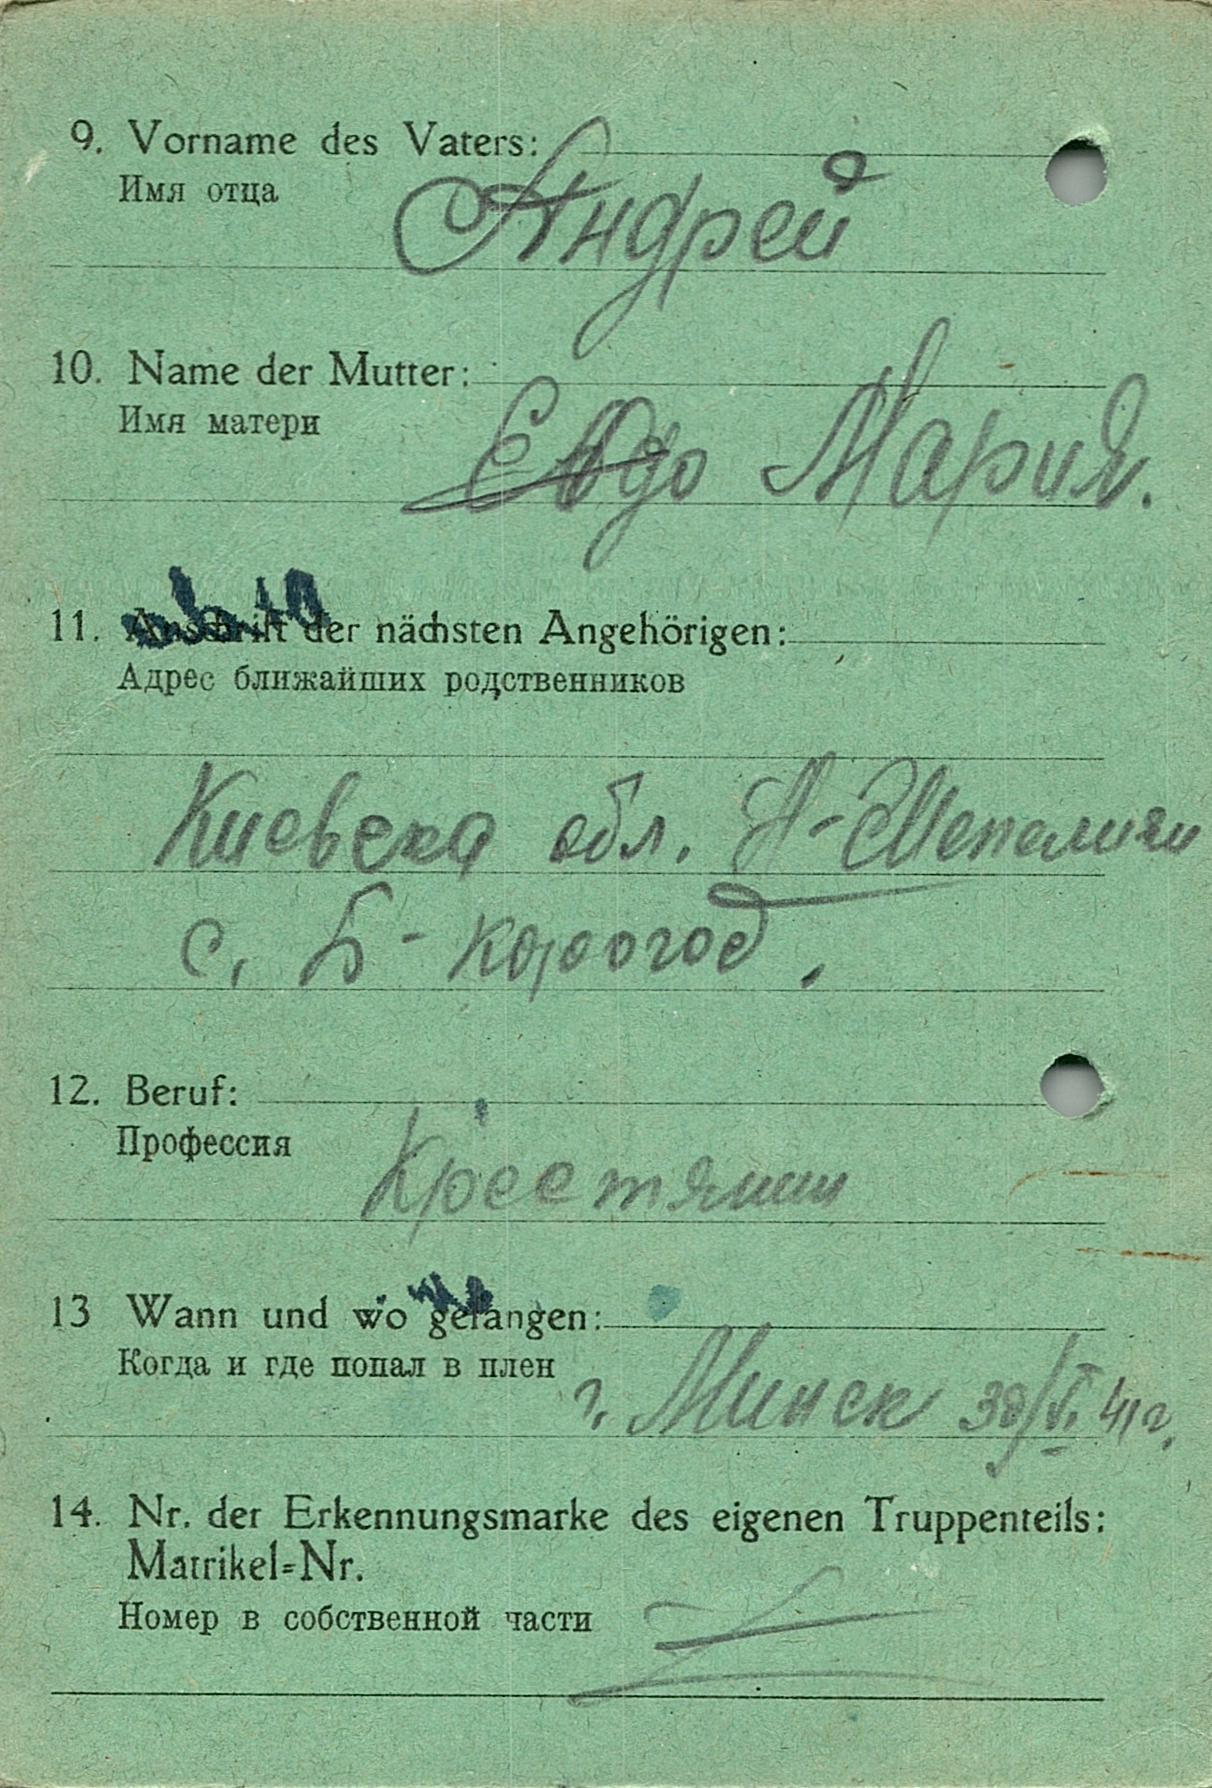 9. Vorname des Vaters:
Имя отца
Андрей
10. Name der Mutter:
Имя матери
Евдо Мария.
11. Anschrift der nächsten Angehörigen:
Адрес ближайших родственников
Киевска обл. Н-Шепеличи
с. Б-корогод.
12. Beruf:
Профессия
Крестянин
13 Wann und wo gefangen:
Когда и где попал в плен
г. Минск 30/VI 41 г.
14. Nr. der Erkennungsmarke des eigenen Truppenteils:
Matrikel=Nr.
Номер в собственной части